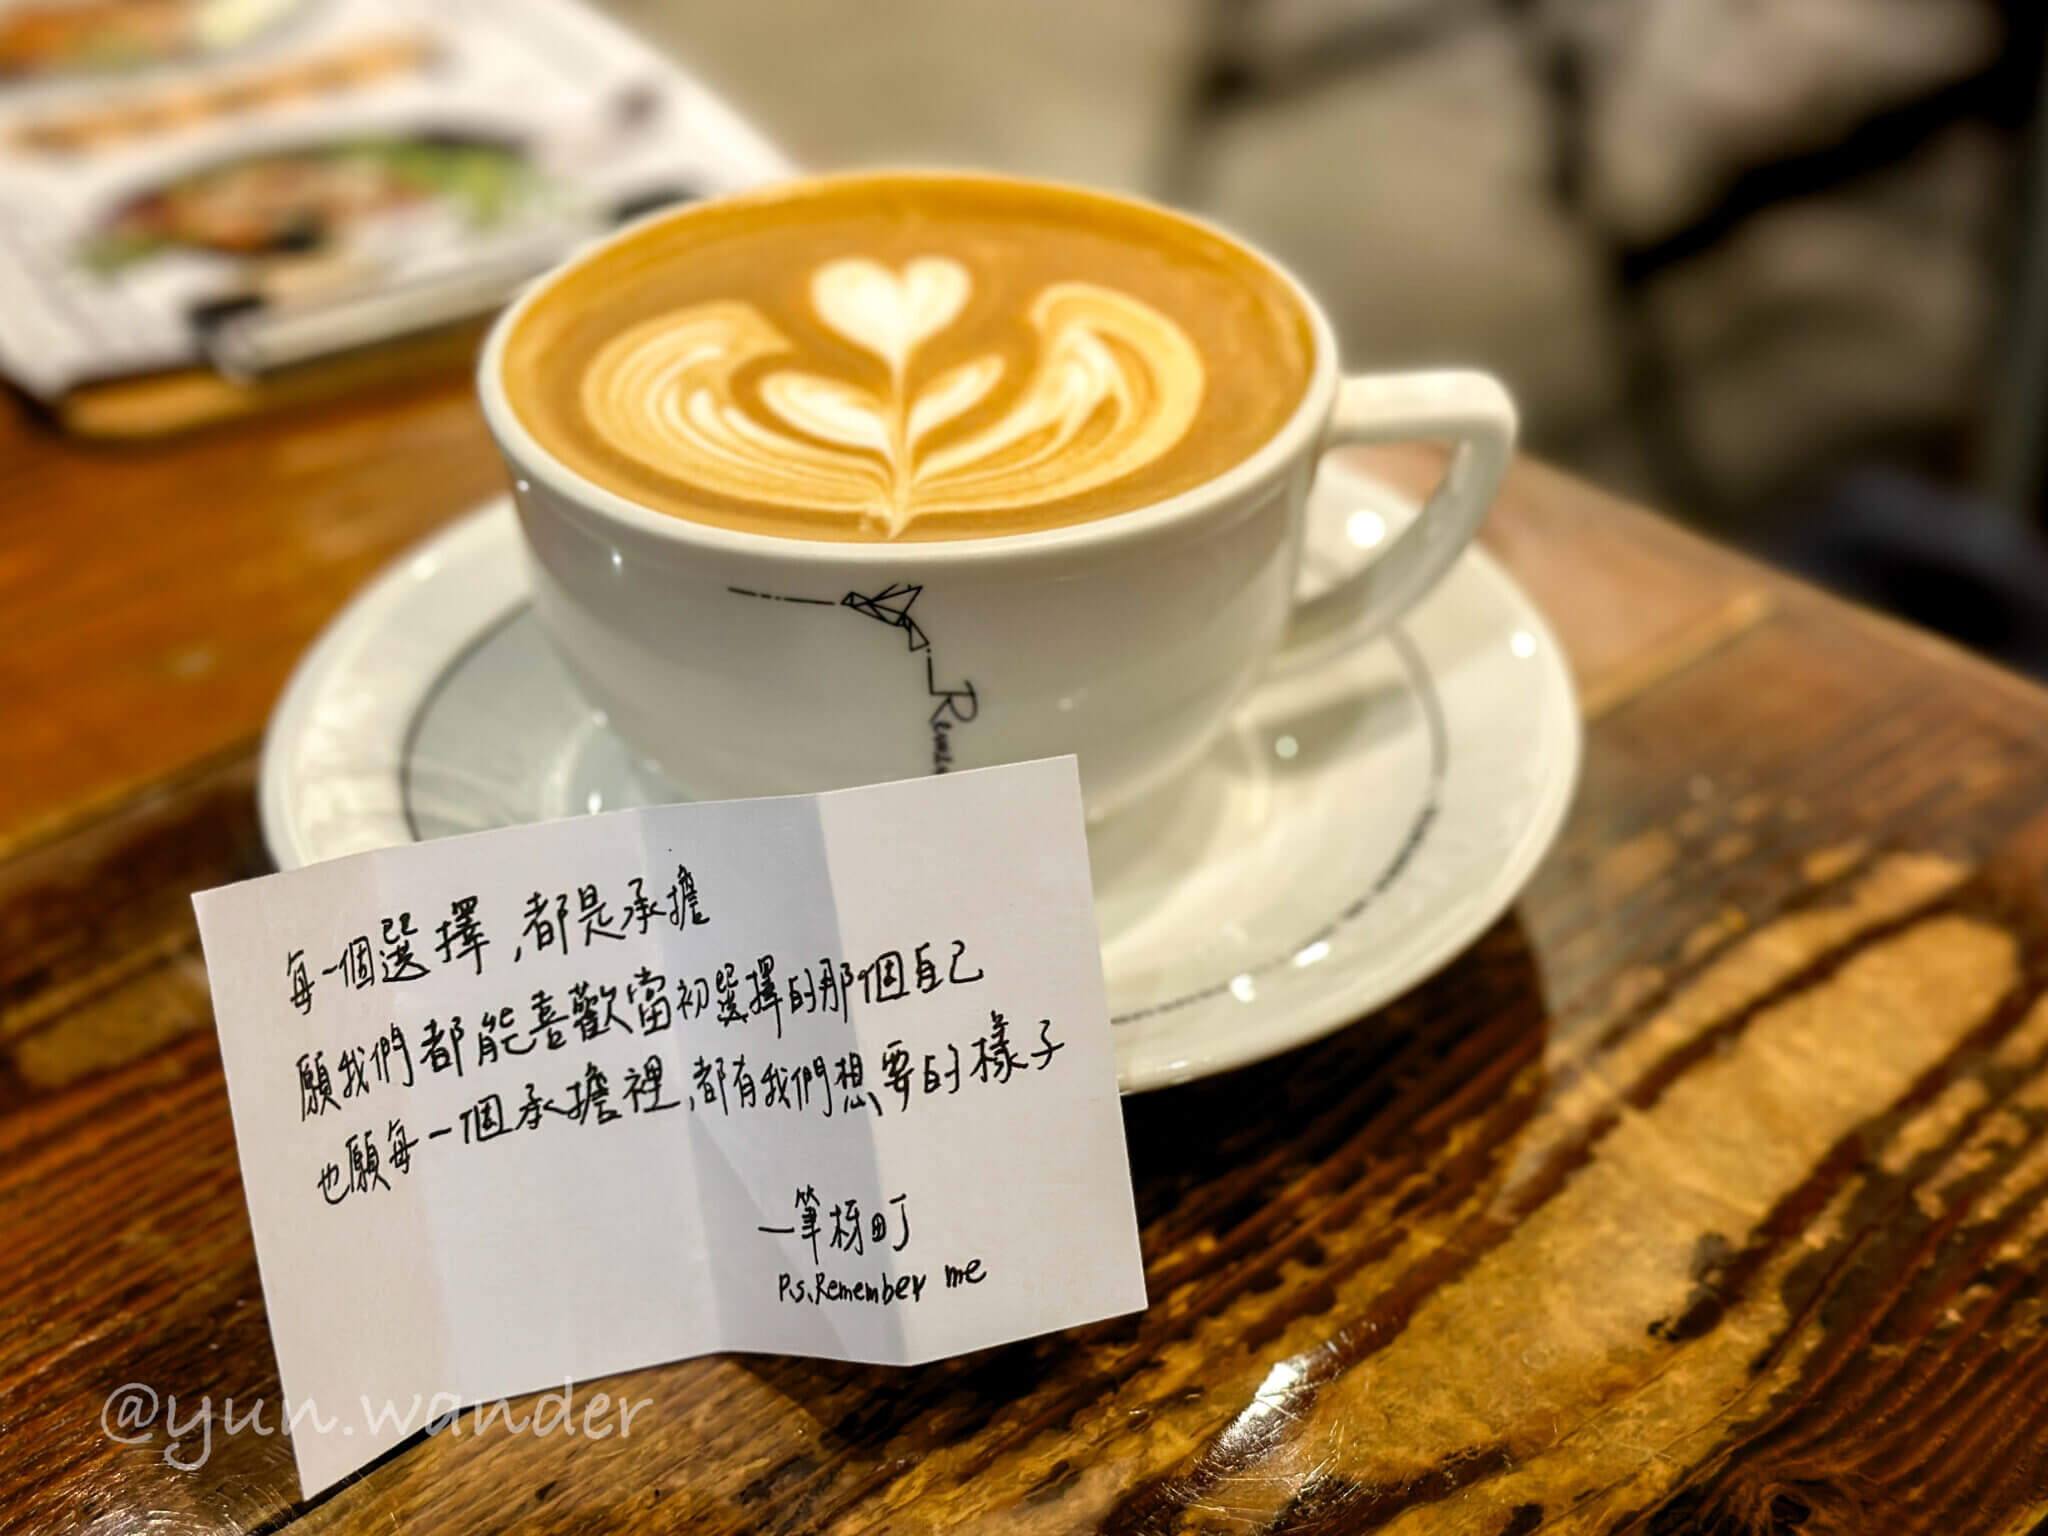 每一個選擇,都是承擔
願我們都能喜歡當初選擇的那個自己
也願每一個承擔裡,都有我們想要的樣子
一筆枒町
P.S. Remember me
@yun.wander